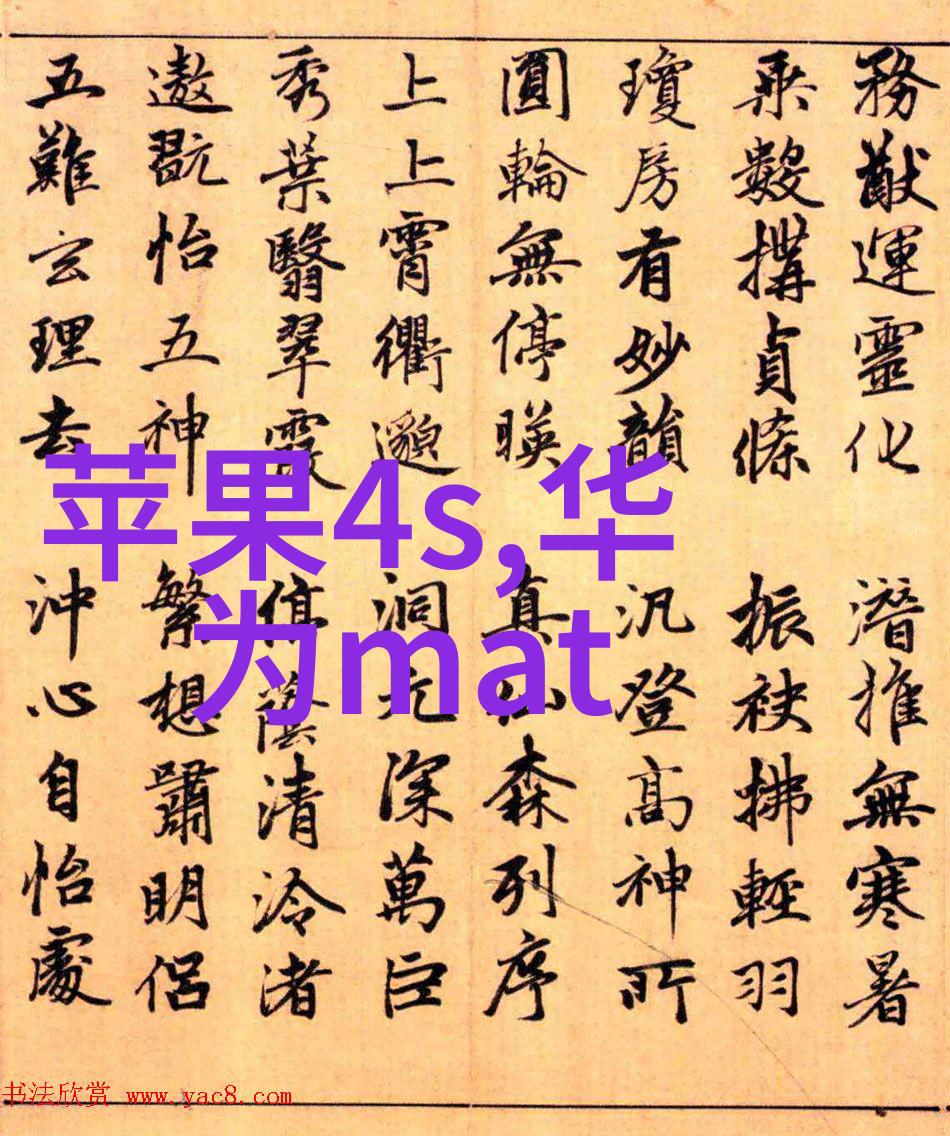 務猷運靈化 潛推無寒暑
乘數構貞條 振袂拂輕羽
瓊房有妙韻 汎登高神所
圓輪無停暎 真仙森列序
上上霄衢邈 洞元深萬巨
秀葉翳翠霞 停蔭清泠渚
遨翫怡五神 繁想嘯明侶
五難玄理去 沖心自怡處
苹果4s,华
为mat
书法欣赏 www.yac8.com